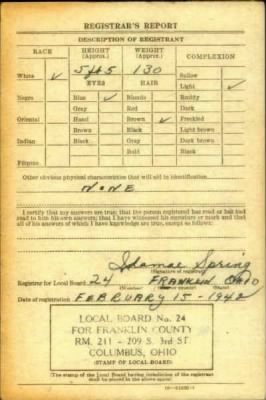 REGISTRAR'S REPORT
DESCRIPTION OF REGISTRANT
RACE HEIGHT (Approx.) WEIGHT (Approx.) COMPLEXION
5 ft 5 130 Sallow
White ✓ EYES HAIR Light ✓
Negro Blue ✓ Blonde Ruddy
Gray Red Dark
Oriental Hazel Brown ✓ Freckled
Brown Black Light brown
Indian Black Gray Dark brown
Bald Black
Filipino
Other obvious physical characteristics that will aid in identification
NONE
I certify that my answers are true; that the person registered has read or has had
read to him his own answers; that I have witnessed his signature or mark and that
all of his answers of which I have knowledge are true, except as follows:
Idamae Spring
(Signature of registrar)
Registrar for Local Board 24 FRANKLIN OHIO
Date of registration FEBRUARY 15 - 1942
LOCAL BOARD No. 24
FOR FRANKLIN COUNTY
RM. 211 - 209 S. 3rd ST
COLUMBUS, OHIO
(STAMP OF LOCAL BOARD)
(The stamp of the Local Board having jurisdiction of the registrant
shall be placed in the above space.)